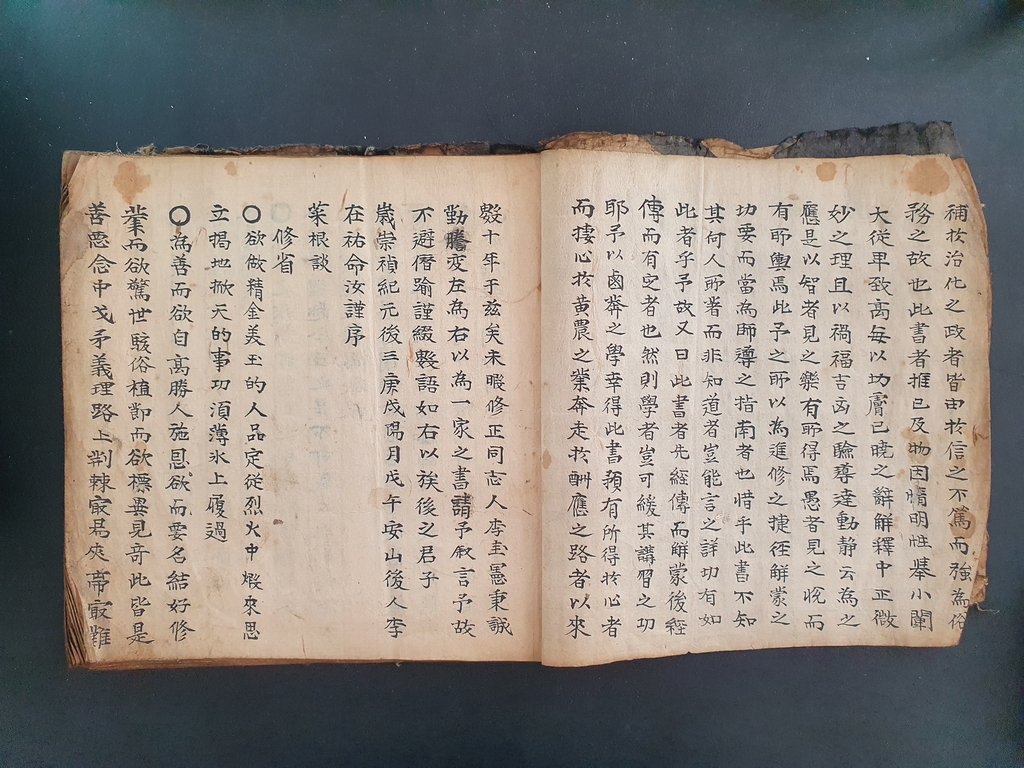 補於治化之政者皆由於信之不篤而强為俗
務之故也此書者推已及物因情明性擧小闡
大從卑致高每以功膚已曉之辭解釋中正微
妙之理且以禍福吉凶之驗導達動静云為之
應是以智者見之樂有所得焉愚者見之悅而
有所興焉此予之所以為進修之捷徑解蒙之
功要而當為師導之指南者也惜乎此書不知
其何人所著而非知道者豈能言之詳切有如
此者乎予故又曰此書者先經傳而解蒙後經
傳而有定者也然則學者豈可緩其講習之功
耶予以鹵莽之學幸得此書頗有所得於心者
而捿心於黄農之業奔走於酬應之路者以來
數十年于玆矣未暇修正同志人李圭憲秉誠
勤騰変左為右以為一家之書請予敘言予故
不避僭踰謹綴數語如右以俟後之君子
歲崇禎紀元後三庚戌陽月戊午安山後人李
在祐命汝謹序
菜根談
修省
〇欲做精金美玉的人品定從烈火中煅來思
立掲地掀天的事功須薄氷上履過
〇為善而欲自高勝人施恩欲而要名結好修
業而欲驚世駭俗植節而欲標異見奇此皆是
善惡念中戈矛義理路上荆棘最易夾帶最難